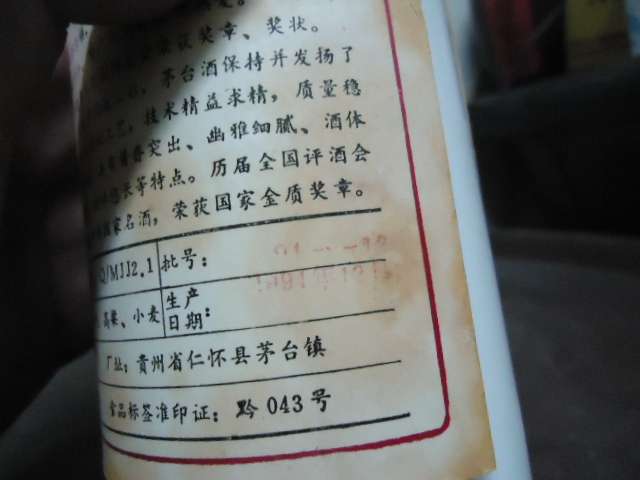 荣获奖章、奖状。
茅台酒保持并发扬了
工艺，技术精益求精，质量稳
突出、幽雅细腻、酒体
等特点。历届全国评酒会
国家名酒，荣获国家金质奖章。
Q/MJJ2.1 批号：
高粱、小麦 生产日期：
厂址：贵州省仁怀县茅台镇
食品标签准印证：黔 043 号